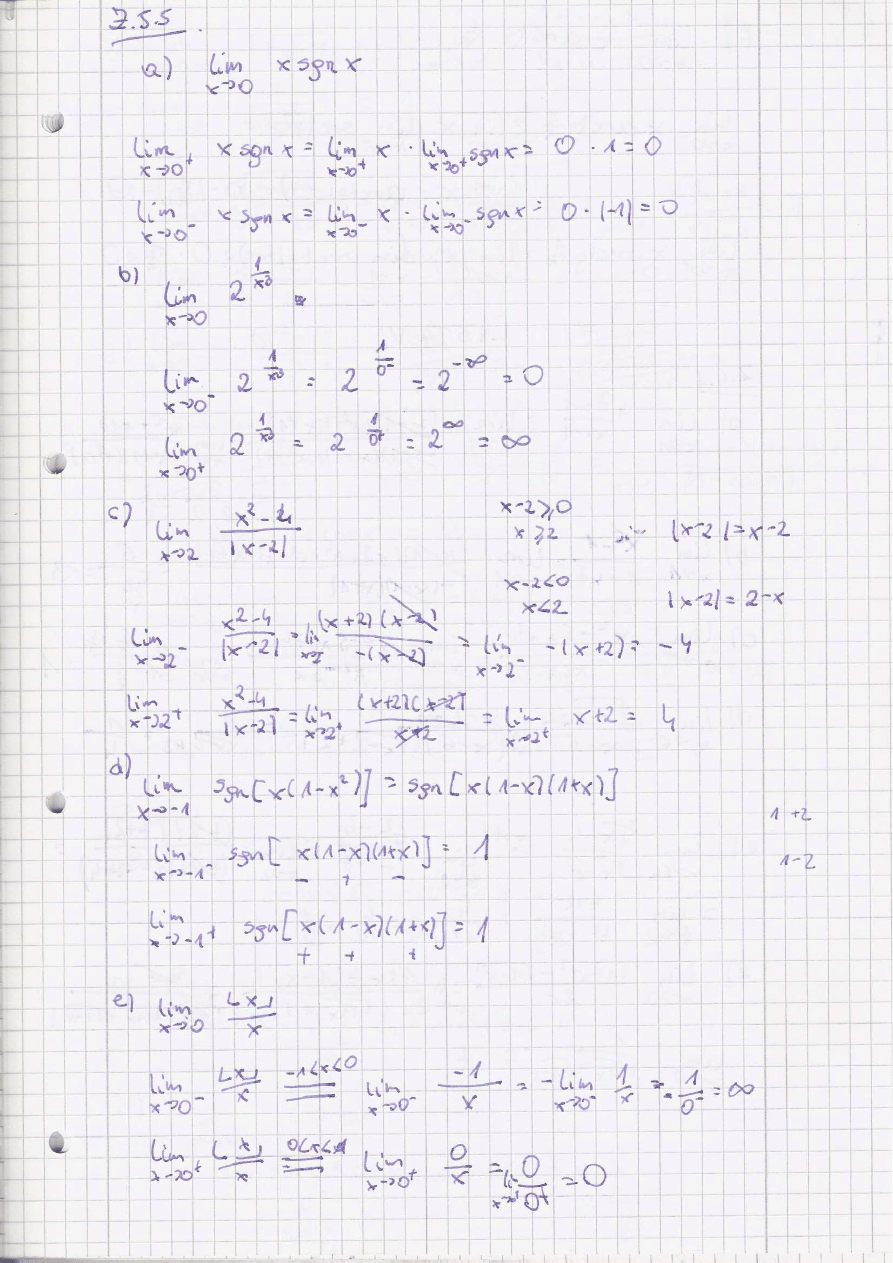 Z.55.
a) lim x→0 x sgn x
lim x→0⁺ x sgn x = lim x→0⁺ x · lim x→0⁺ sgn x = 0 · 1 = 0
lim x→0⁻ x sgn x = lim x→0⁻ x · lim x→0⁻ sgn x = 0 · (-1) = 0
b) lim x→0 2^(1/x³) =
lim x→0⁻ 2^(1/x³) = 2^(1/0⁻) = 2^(-∞) = 0
lim x→0⁺ 2^(1/x³) = 2^(1/0⁺) = 2^∞ = ∞
c) lim x→2 (x²-4)/|x-2|
x-2⩾0
x⩾2 |x-2| = x-2
x-2<0
x<2 |x-2| = 2-x
lim x→2⁻ (x²-4)/|x-2| = lim x→2⁻ (x+2)(x-2)/-(x-2) = lim x→2⁻ -(x+2) = -4
lim x→2⁺ (x²-4)/|x-2| = lim x→2⁺ (x+2)(x-2)/(x-2) = lim x→2⁺ x+2 = 4
d) lim x→-1 sgn[x(1-x²)] = sgn[x(1-x)(1+x)]
1+2
lim x→-1⁻ sgn[x(1-x)(1+x)] = 1
1-2
- + -
lim x→-1⁺ sgn[x(1-x)(1+x)] = 1
+ + +
e) lim x→0 ⌊x⌋/x
lim x→0⁻ ⌊x⌋/x =(-1<x<0)= lim x→0⁻ -1/x = -lim x→0⁻ 1/x = -1/0⁻ = ∞
lim x→0⁺ ⌊x⌋/x =(0<x<1)= lim x→0⁺ 0/x = lim x→0⁺ 0/0⁺ = 0